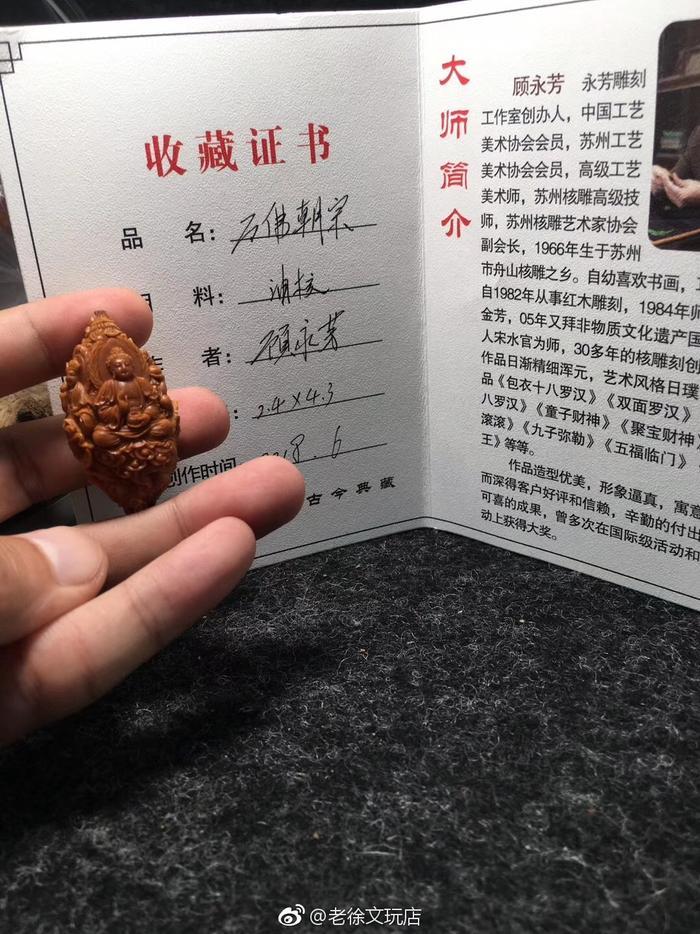 收藏证书
品 名: 万佛朝宗
料: 油核
者: 顾永芳
: 2.4×4.3
创作时间 18.6
古今典藏
大师简介
顾永芳 永芳雕刻
工作室创办人，中国工艺
美术协会会员，苏州工艺
美术协会会员，高级工艺
美术师，苏州核雕高级技
师，苏州核雕艺术家协会
副会长，1966年生于苏州
市舟山核雕之乡。自幼喜欢书画，
自1982年从事红木雕刻，1984年师
金芳，05年又拜非物质文化遗产国
人宋水官为师，30多年的核雕刻创
作品日渐精细浑元，艺术风格日瑧
品《包衣十八罗汉》《双面罗汉》
八罗汉》《童子财神》《聚宝财神》
滚滚》《九子弥勒》《五福临门》
王》等等。
作品造型优美，形象逼真，寓意
而深得客户好评和信赖，辛勤的付出
可喜的成果，曾多次在国际级活动和
动上获得大奖。
@老徐文玩店